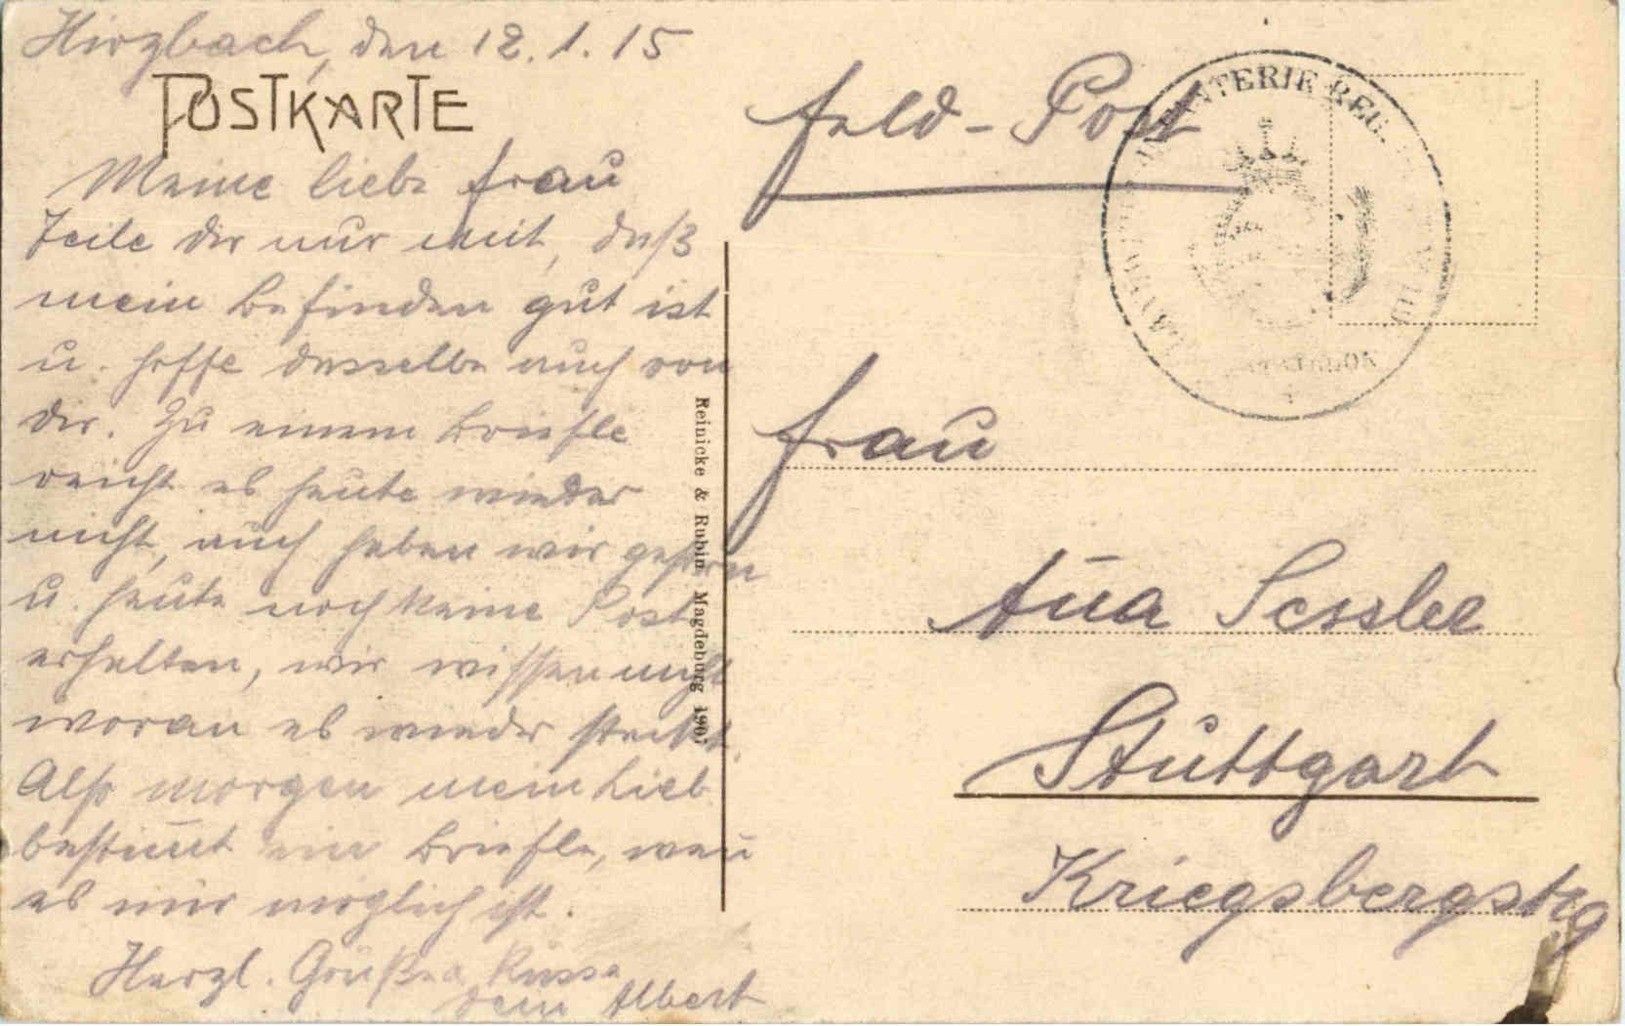 Hirzbach, den 12.1.15
POSTKARTE
Meine liebe Frau
Teile dir nur mit, daß
mein Befinden gut ist
u. hoffe dasselbe auch von
dir. Zu einem Briefle
reicht es heute wieder
nicht, auch haben wir gestern
u. heute noch keine Post
erhalten, wir wissen nicht
woran es wieder steckt.
Also morgen mein Lieb
bestim̅t ein Briefle, wen̅
es mir möglich ist.
Herzl. Grüße u. Küsse
dein Albert
Reinicke & Rubin, Magdeburg 1907
Feld-Post
INFANTERIE REG.
BATAILLON
Frau
Sessler
Stuttgart
Kriegsbergstr